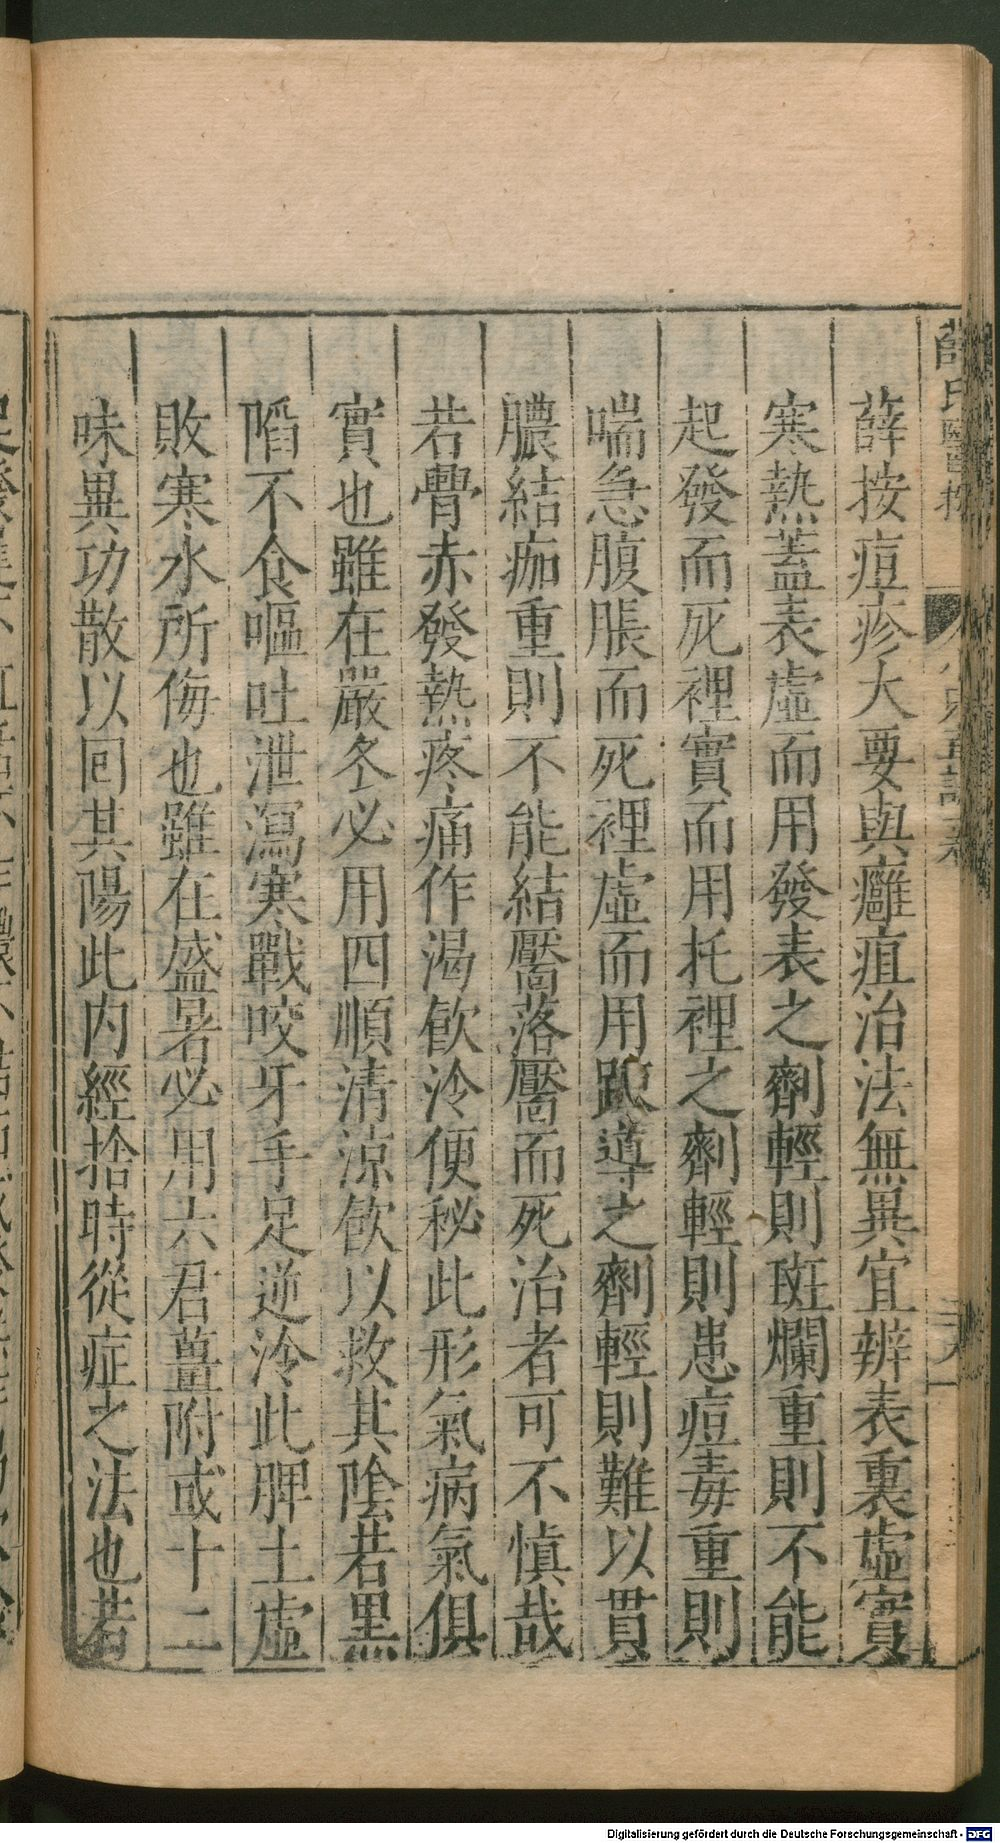 薛按痘疹大要與癰疽治法無異宜辨表裏虛實
寒熱蓋表虛而用發表之劑輕則斑爛重則不能
起發而死裡實而用托裡之劑輕則患痘毒重則
喘急腹脹而死裡虛而用踈導之劑輕則難以貫
膿結痂重則不能結靨落靨而死治者可不慎哉
若臀赤發熱疼痛作渴飲冷便秘此形氣病氣俱
實也雖在嚴冬必用四順清涼飲以救其陰若黑
陷不食嘔吐泄瀉寒戰咬牙手足逆冷此脾土虛
敗寒水所侮也雖在盛暑必用六君薑附或十二
味異功散以回其陽此內經捨時從症之法也若
Digitalisierung gefördert durch die Deutsche Forschungsgemeinschaft - DFG